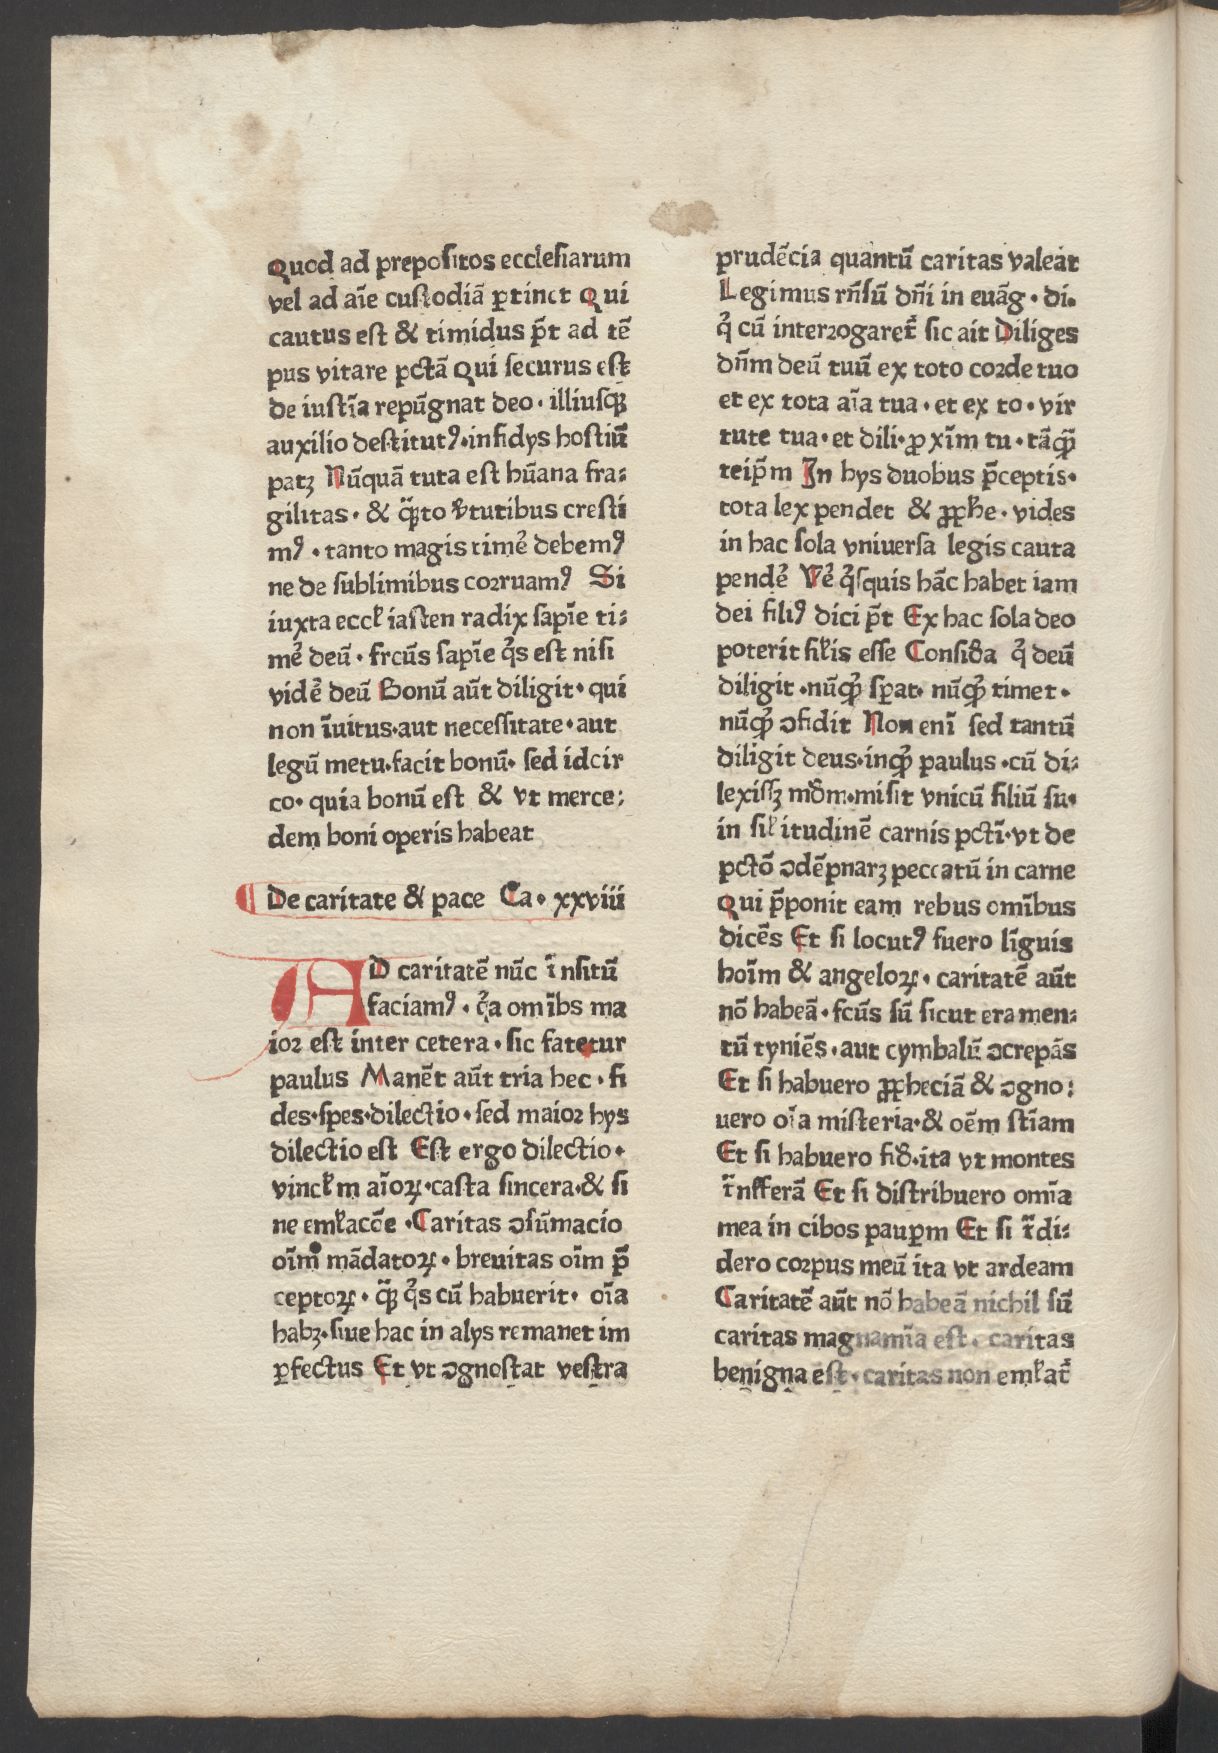 Quod ad prepositos ecclesiarum
vel ad aīe custodiā ꝑtinet Qui
cautus est & timidus p̄t ad tē
pus vitare pctā Qui securus est
de iustīa repūgnat deo · illiusqꝫ
auxilio destitutꝰ·infidys hostiū
patꝫ Nūquā tuta est hūana fra⸗
gilitas · & q̄ꝫto v̓tutibus cresti
mꝰ · tanto magis timē debemꝰ
ne de sublimibus corruamꝰ Si
iuxta eccł iasten radix sapīe ti⸗
mē deū · frcūs sapīe q̓s est nisi
vidē deū Bonū aūt diligit · qui
non īuitus·aut necessitate·aut
legū metu·facit bonū· sed idcir
co· quia bonū est & vt merce⸗
dem boni operis habeat
¶ De caritate & pace Ca· xxviii
AD caritatē nūc ī nsitū
faciamꝰ · q̓a omībs ma
ior est inter cetera · sic fatetur
paulus Manēt aūt tria hec · fi
des·spes·dilectio · sed maior hys
dilectio est Est ergo dilectio·
vincłm aīoꝝ·casta sincera·& si
ne emłacōe ·Caritas ↄsūmacio
oīm mādatoꝝ · breuitas oīm p̄
ceptoꝝ · q̄ꝫ q̓s cū habuerit· oīa
habꝫ·siue hac in alys remanet im
ꝑfectus Et vt ↄgnostat vestra
prudēcia quantū caritas valeat
Legimus rn̄sū dn̄i in euāg · di·
q̓ cū interrogaret̄ sic ait Diliges
dn̄m deū tuū ex toto corde tuo
et ex tota aīa tua · et ex to · vir
tute tua · et dili · ꝓ xīm tu · tāqꝫ
teip̄m In hys duobus p̄ceptis·
tota lex pendet & ꝓpħe · vides
in hac sola vniuersa legis cauta
pendē Vē q̓squis hāc habet iam
dei filiꝰ dici p̄t Ex hac sola deo
poterit siłis esse Consiđa q̓ deū
diligit ·nūqꝫ sꝑat· nūqꝫ timet ·
nūqꝫ ↄfidit Non enī sed tantū
diligit deus·inqꝫ paulus ·cū di⸗
lexissꝫ mđm·misit vnicū filiū su·
in sił itudinē carnis pctī·vt de
pctō ↄdēpnarꝫ peccatū in carne
Qui p̄ponit eam rebus omībus
dicēs Et si locutꝰ fuero līguis
hoīm & angeloꝝ · caritatē aūt
nō habeā · fcūs sū sicut eramen⸗
tū tyniēs · aut cymbalū ↄcrepās
Et si habuero ꝓpħeciā & ↄgno⸗
uero oīa misteria·& oēm stīam
Et si habuero fiđ·ita vt montes
t̄nsferā Et si distribuero omīa
mea in cibos pauꝑm Et si t̄di⸗
dero corpus meū ita vt ardeam
Caritatē aūt nō habeā nichil sū
caritas magnamīa est · caritas
benigna est · caritas non emłat̄